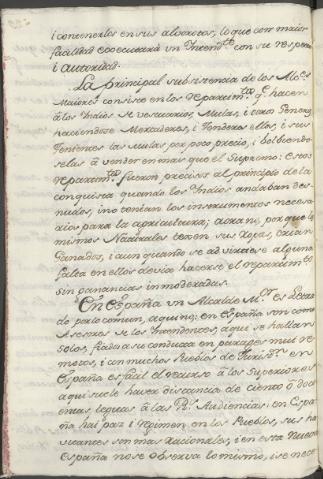 i contenerlos en sus alborotos, lo que con maior
facilidad executará un Intend.te con su respeto
i autoridad.
La principal subsistencia de los Alc.s
Maiores consiste en los repartim.tos q.e hacen
â los Indios de vestuarios, Mulas, i otros Generos,
haciendose Mercaderes, i Tenderos ellos, i sus
Tenientes las Mulas por poco precio, i bolbiendo
selas â vender en mas que el Supremo: estos
repartim.tos fueron precisos al principio de la
conquista quando los Indios andaban des-
nudos, i no tenian los instrumentos necesa-
rios para la agricultura; aora no, porque los
mismos Naturales texen sus Ropas, crian
Ganados, i aun quando se advirtiese alguna
falta en ellos devia hacerse el repartim.to
sin ganancias inmoderadas.
En España un Alcalde M.or es Letrado
de parte comun, aqui no; en España son como
Asesores de los Intendentes, aqui se hallan
solos, fiada a su conducta en parages mui re-
motos, i con muchos Pueblos de Jurisd.n en
España es facil el recurso â los Superiores
aqui suele haver distancia de ciento ô doce
ô mas leguas â las R.s Audiencias: en Espa
ña hai paz i regimen en los Pueblos, sus ha
vitantes son mas racionales, i en esta Nueva
España no se observa lo mismo, i se nece